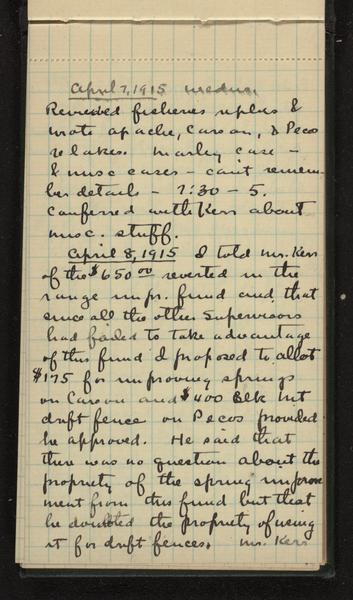 April 7, 1915 Wednes.
Reviewed fisheries replies &
wrote Apache, Carson, & Pecos
re lakes. Manley case -
& misc cases - can't remem-
ber details - 7:30 - 5.
Conferred with Kerr about
misc. stuff.
April 8, 1915 I told Mr. Kerr
of the $650 00 reverted in the
range impr. fund and that
since all the other Supervisors
had failed to take advantage
of this fund I proposed to allot
$175 for improving springs
on Carson and $400 Elk Mt
drift fence on Pecos provided
he approved. He said that
there was no question about the
propriety of the spring improve
ment from this fund but that
he doubted the propriety of using
it for drift fences. Mr. Kerr